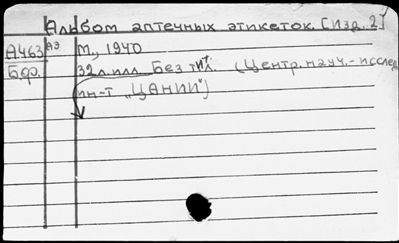 Альбом аптечных этикеток. [Изд. 2]
А463 АЭ М., 1940
Бф. 32 л. илл. Без тит. (Центр. науч.-исслед.
ин-т "ЦАНИИ")